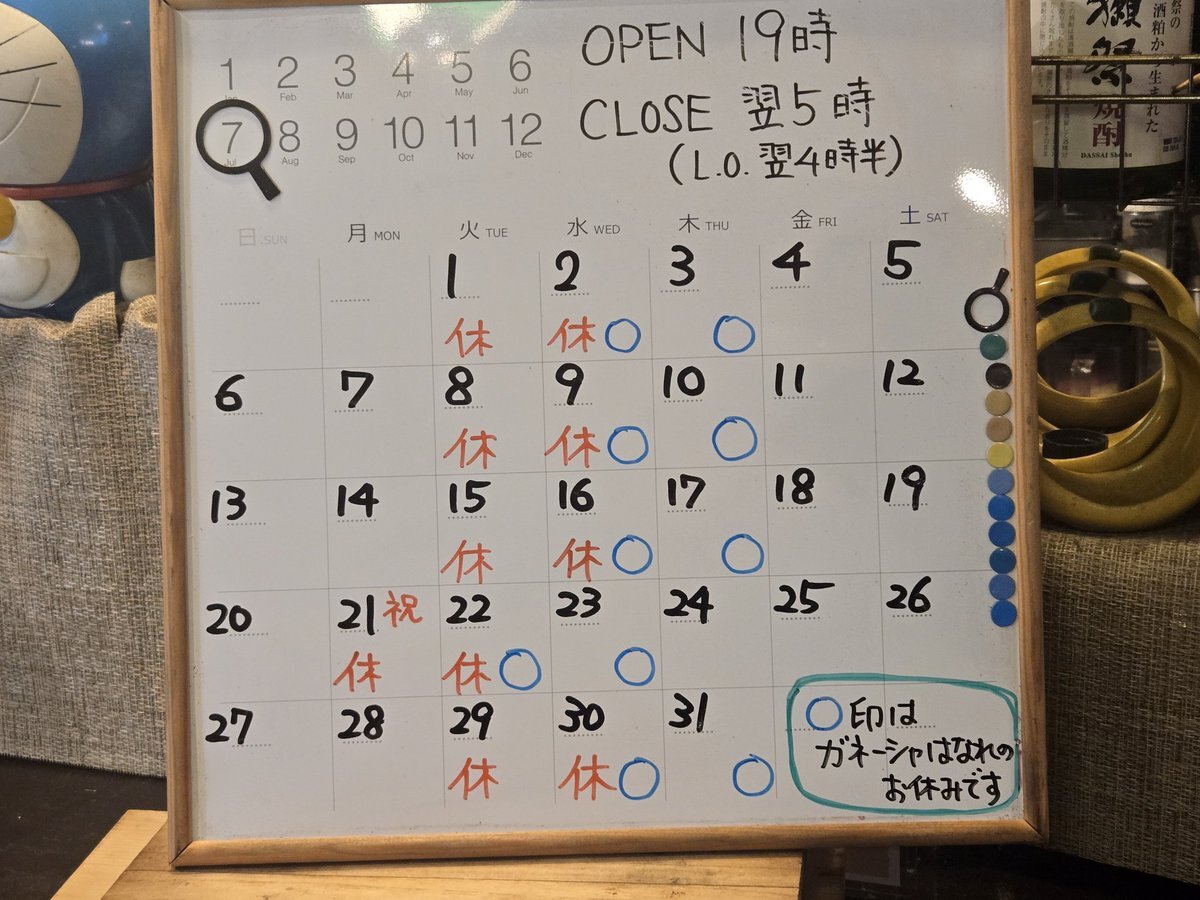 OPEN 19時
CLOSE 翌5時
(L.O. 翌4時半)
1 2 3 4 5 6
Jan Feb Mar Apr May Jun
7 8 9 10 11 12
Jul Aug Sep Oct Nov Dec
日.SUN 月 MON 火 TUE 水 WED 木 THU 金 FRI 土 SAT
1 2 3 4 5
休 休○ ○
6 7 8 9 10 11 12
休 休○ ○
13 14 15 16 17 18 19
休 休○ ○
20 21祝 22 23 24 25 26
休 休○ ○
27 28 29 30 31
休 休○ ○
○印は
ガネーシャはなれの
お休みです
獺祭
焼酎
DASSAI Shochu
祭の
酒粕から生まれた